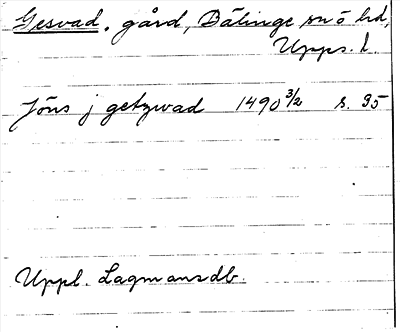 Gesvad, gård, Bälinge sn o hd,
Upps. l.
Jöns j getzwad 1490 3/2 s. 95
Uppl. Lagmansdb.